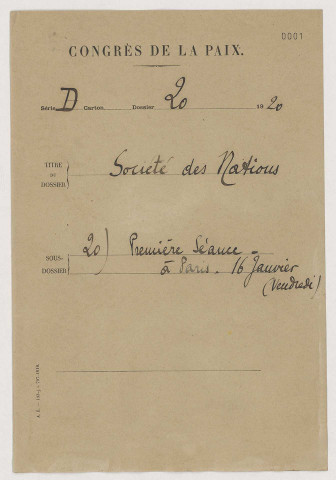 0001
CONGRÈS DE LA PAIX.
Série D Carton Dossier 20 1920
TITRE DU DOSSIER Société des Nations
SOUS-DOSSIER 20) Première Séance -
à Paris - 16 Janvier
(Vendredi)